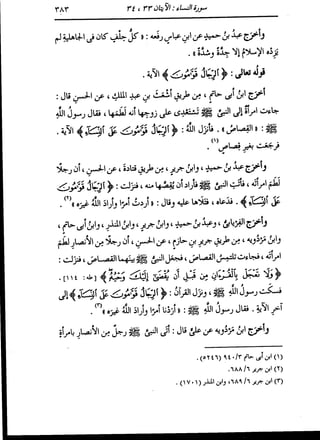 سورة النساء : الآيتان ٣٣، ٣٤ ٣٨٣
وأخرج عبدُ بنُ حميدٍ عن ابنِ عباسٍ رفعه : « كلُّ حِلْفٍ كان في الجاهليةِ لم
يَزِدْه الإسلامُ إلا جِدَّةً وشِدَّةً » .
قولُه تعالى : ﴿ الرِّجَالُ قَوَّٰمُونَ ﴾ الآية .
أخرج ابنُ أبي حاتمٍ ، من طريقِ أشعثَ بنِ عبدِ الملكِ ، عن الحسنِ قال :
جاءت امرأةٌ إلى النبيِّ ﷺ تَستعدِى على زوجِها أنه لَطَمها ، فقال رسولُ اللهِ
ﷺ : « القِصاصُ » . فأنزل اللهُ : ﴿ الرِّجَالُ قَوَّٰمُونَ عَلَى النِّسَآءِ ﴾ الآية .
فرجعت بغيرِ قِصاصٍ (١) .
وأخرج عبدُ بنُ حميدٍ ، وابنُ جريرٍ ، من طريقِ قتادةَ ، عن الحسنِ ، أن رجلًا
لطَم امرأتَه ، فأتت النبيَّ ﷺ فأراد أن يُقِصَّها منه ، فنزلت : ﴿ الرِّجَالُ قَوَّٰمُونَ
عَلَى النِّسَآءِ ﴾ . فدعاه ، فتلاها عليه وقال : « أردتُ أمرًا وأراد اللهُ غيرَه » (٢) .
وأخرج الفريابيُّ ، وعبدُ بنُ حميدٍ ، وابنُ جريرٍ ، وابنُ المنذرِ ، وابنُ أبي حاتمٍ ،
وابنُ مَرْدُويَه ، من طريقِ جريرِ بنِ حازمٍ ، عن الحسنِ ، أن رجلًا من الأنصارِ لطَم
امرأتَه ، فجاءت تلتمسُ القصاصَ ، فجعل النبيُّ ﷺ بينهما القصاصَ ، فنزلت :
﴿ وَلَا تَعْجَلْ بِالْقُرْءَانِ مِن قَبْلِ أَن يُقْضَىٰٓ إِلَيْكَ وَحْيُهُ ﴾ [ طه : ١١٤ ] .
فسكت رسولُ اللهِ ﷺ ، ونزل القرآنُ : ﴿ الرِّجَالُ قَوَّٰمُونَ عَلَى النِّسَآءِ ﴾ إلى
آخرِ الآية . فقال رسولُ اللهِ ﷺ : « أردْنا أمرًا وأراد اللهُ غيرَه » (٣) .
وأخرج ابنُ مَرْدُويَه عن عليٍّ قال : أتى النبيَّ ﷺ رجلٌ من الأنصارِ بامرأةٍ
(١) ابن أبي حاتم ٣/ ٩٤٠ (٥٢٤٦) .
(٢) ابن جرير ٦/ ٦٨٨ .
(٣) ابن جرير ٦/ ٦٨٩، وابن المنذر (١٧٠١) .